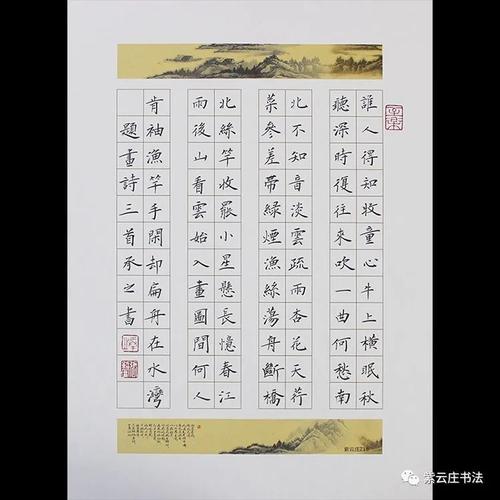 誰人得知牧童心牛上橫眠秋
聽深時復往來吹一曲何愁南
北不知音淡雲疏雨杏花天荇
菜參差帶綠煙漁絲蕩舟斷橋
北絲竿收罷小星懸長憶春江
雨後山看雲始入畫圖間何人
肯袖漁竿手閑却扁舟在水灣
題畫詩三首承之書
紫云庄书法